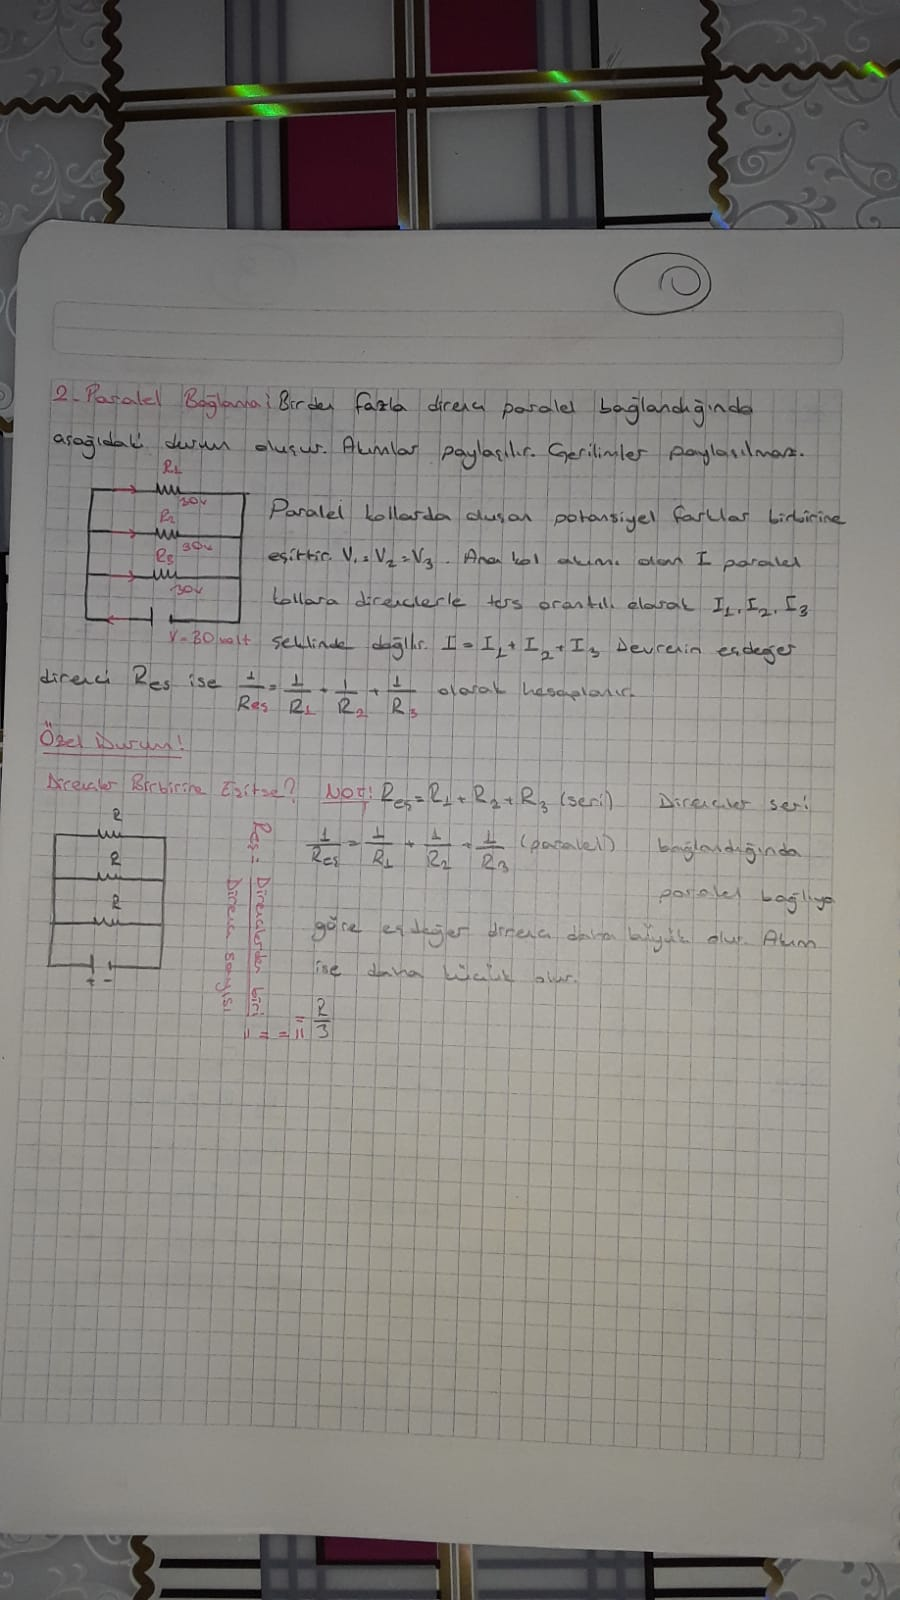 2-Paralel Bağlama: Birden fazla direnç paralel bağlandığında
aşağıdaki durum oluşur. Akımlar paylaşılır. Gerilimler paylaşılmaz.
R1
30v
R2
30v
R3
30v
V=30 volt
Paralel kollarda oluşan potansiyel farklar birbirine
eşittir. V1=V2=V3. Ana kol akımı olan I paralel
kollara dirençlerle ters orantılı olarak I1, I2, I3
şeklinde dağılır. I = I1 + I2 + I3 Devrenin eşdeğer
direnci Reş ise 1/Reş = 1/R1 + 1/R2 + 1/R3 olarak hesaplanır.
Özel Durum!
Dirençler Birbirine Eşitse?
R
R
R
+ -
Reş = Dirençlerden biri
Direnç sayısı
= R/3
NOT! Reş = R1 + R2 + R3 (seri)
1/Reş = 1/R1 + 1/R2 + 1/R3 (paralel)
Dirençler seri
bağlandığında
paralel bağlıya
göre eşdeğer direnç daha büyük olur. Akım
ise daha küçük olur.